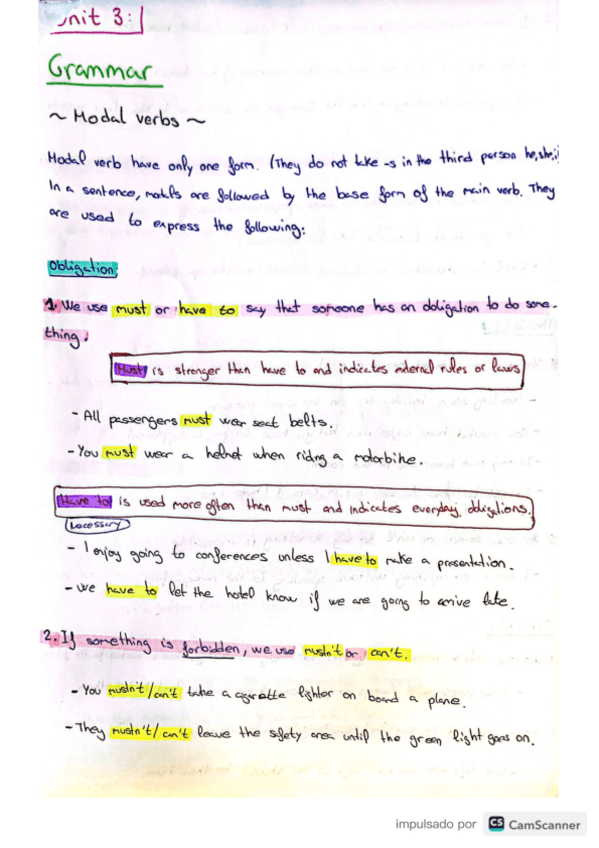 Unit 3:
Grammar
~ Modal verbs ~
Modal verb have only one form. (They do not take -s in the third person he, she, i
In a sentence, modals are followed by the base form of the main verb. They
are used to express the following:
Obligation:
1. We use must or have to say that someone has an obligation to do some-
thing.
Must is stronger than have to and indicates external rules or laws
- All passengers must wear seat belts.
- You must wear a helmet when riding a motorbike.
Have to is used more often than must and indicates everyday obligations.
(necessary)
- I enjoy going to conferences unless I have to make a presentation.
- We have to let the hotel know if we are going to arrive late.
2. If something is forbidden, we use mustn't or can't.
- You mustn't/can't take a cigarette lighter on board a plane.
- They mustn't/can't leave the safety area until the green light goes on.
impulsado por CS CamScanner